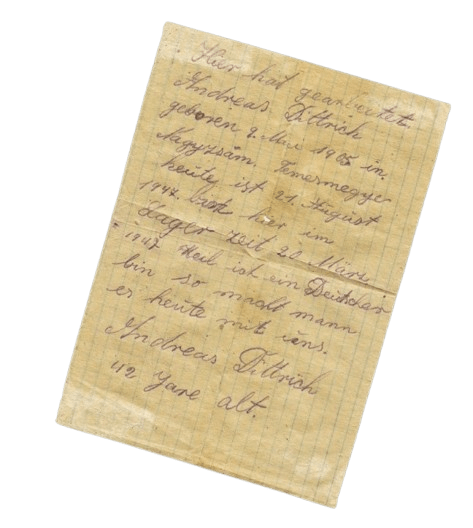 Hier hat gearbeitet.
Andreas Dittrich
geboren 9. Mai 1905 in.
Nagyzsám. Temesmegye
heute ist 21. August
1947. hier im
Lager Zeit 20. März
1947 Weil ist ein Deutscher
bin so macht mann
es heute mit uns.
Andreas Dittrich
42 Jare alt.